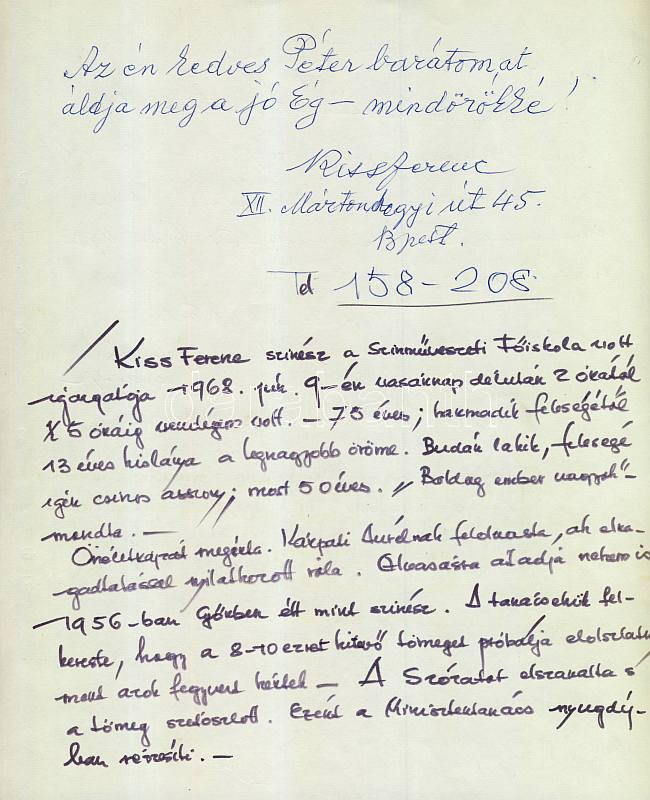 Az én kedves Péter barátomat
áldja meg a jó Ég – mindörökké!
Kiss Ferenc
XII. Mártonhegyi út 45.
Bpest.
Tel 158-208.
Kiss Ferenc szinész a Szinművészeti Főiskola volt
igazgatója 1968. jun. 9-én vasárnap délután 2 órától
½ 5 óráig vendégem volt. – 75 éves; harmadik feleségétől
13 éves kislánya a legnagyobb öröme. Budán lakik, felesége
igen csinos asszony; most 50 éves. „Boldog ember vagyok"–
mondta. –
Önéletrajzát megírta. Kárpáti Aurélnak felolvasta, aki elra-
gadtatással nyilatkozott róla. Olvasásra átadja nekem is
1956-ban Győrben élt mint szinész. A tanácselnök fel-
kereste, hogy a 8-10 ezret kitevő tömeget próbálja eloszlatni
mert azok fegyvert kértek – A Szózatot elszavalta s
a tömeg szétoszlott. Ezért a Minisztertanács nyugdíj-
ban részesíti. –